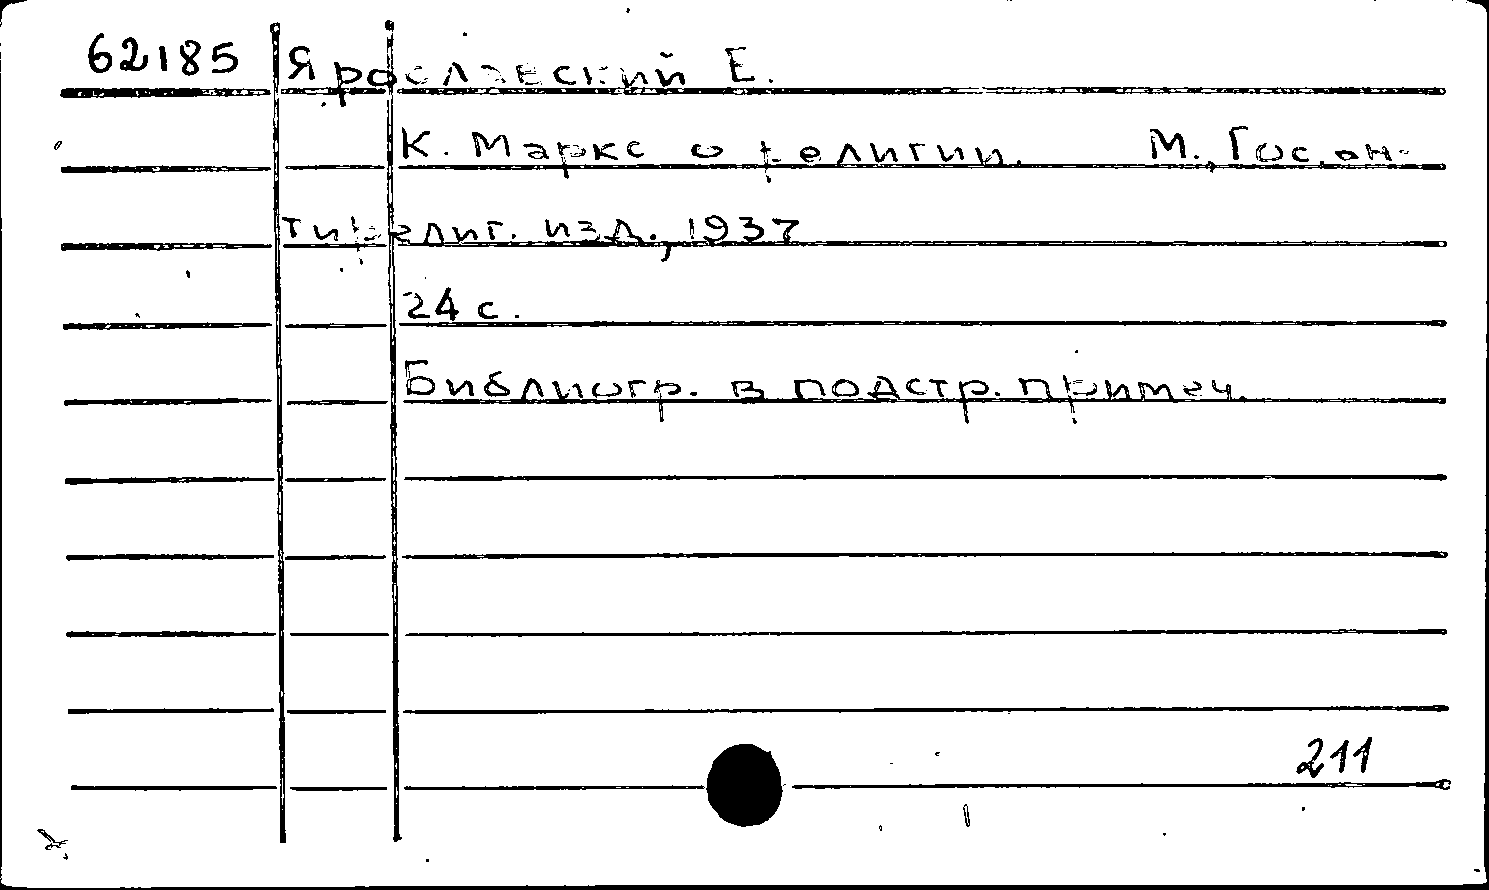 62185 Ярославский Е.
К. Маркс о религии. М., Гос. ан-
тирелиг. изд., 1937
24 с.
Библиогр. в подстр. примеч.
211